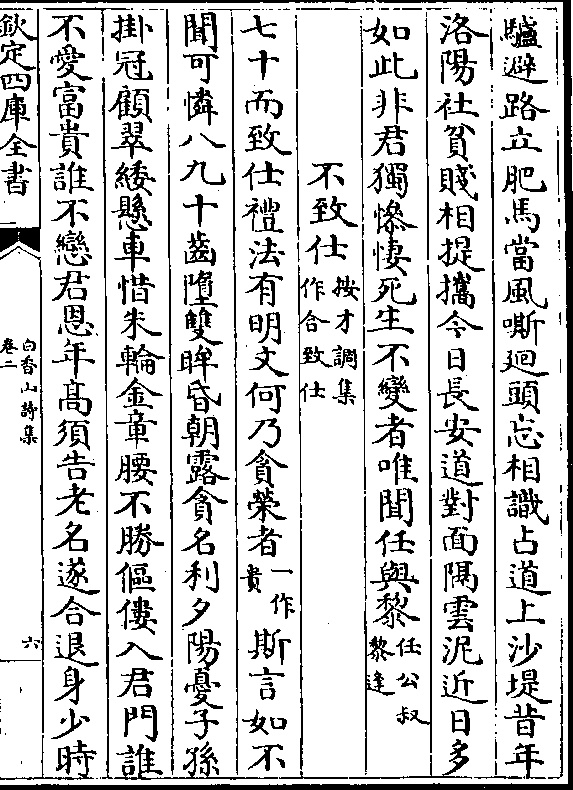 驢避路立肥馬當風嘶迴頭忘相識占道上沙堤昔年
洛陽社貧賤相提攜今日長安道對面隔雲泥近日多
如此非君獨慘悽死生不變者唯聞任與黎任公叔黎逢
不致仕按才調集作合致仕
七十而致仕禮法有明文何乃貪榮者一作貴斯言如不
聞可憐八九十齒墮雙眸昏朝露貪名利夕陽憂子孫
掛冠顧翠緌懸車惜朱輪金章腰不勝傴僂入君門誰
不愛富貴誰不戀君恩年高須告老名遂合退身少時
欽定四庫全書
白香山詩集
卷二
六